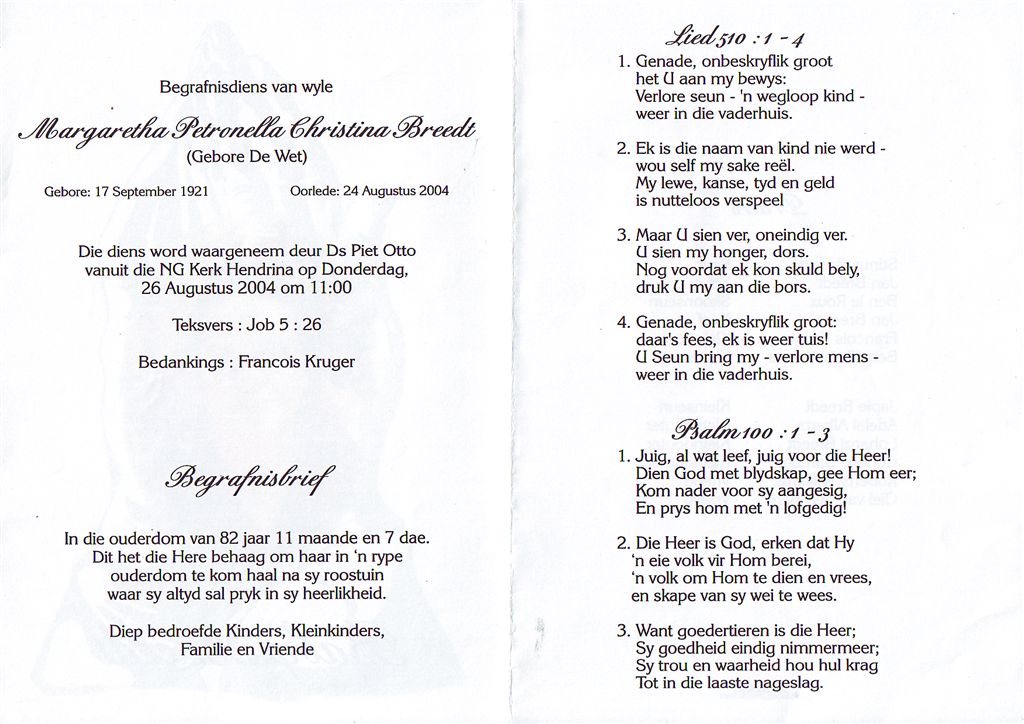 Begrafnisdiens van wyle
Margaretha Petronella Christina Breedt
(Gebore De Wet)
Gebore: 17 September 1921 Oorlede: 24 Augustus 2004
Die diens word waargeneem deur Ds Piet Otto
vanuit die NG Kerk Hendrina op Donderdag,
26 Augustus 2004 om 11:00
Teksvers : Job 5 : 26
Bedankings : Francois Kruger
Begrafnisbrief
In die ouderdom van 82 jaar 11 maande en 7 dae.
Dit het die Here behaag om haar in 'n rype
ouderdom te kom haal na sy roostuin
waar sy altyd sal pryk in sy heerlikheid.
Diep bedroefde Kinders, Kleinkinders,
Familie en Vriende
Lied 510 : 1 - 4
1. Genade, onbeskryflik groot
het U aan my bewys:
Verlore seun - 'n wegloop kind -
weer in die vaderhuis.
2. Ek is die naam van kind nie werd -
wou self my sake reël.
My lewe, kanse, tyd en geld
is nutteloos verspeel
3. Maar U sien ver, oneindig ver.
U sien my honger, dors.
Nog voordat ek kon skuld bely,
druk U my aan die bors.
4. Genade, onbeskryflik groot:
daar's fees, ek is weer tuis!
U Seun bring my - verlore mens -
weer in die vaderhuis.
Psalm 100 : 1 - 3
1. Juig, al wat leef, juig voor die Heer!
Dien God met blydskap, gee Hom eer;
Kom nader voor sy aangesig,
En prys hom met 'n lofgedig!
2. Die Heer is God, erken dat Hy
'n eie volk vir Hom berei,
'n volk om Hom te dien en vrees,
en skape van sy wei te wees.
3. Want goedertieren is die Heer;
Sy goedheid eindig nimmermeer;
Sy trou en waarheid hou hul krag
Tot in die laaste nageslag.